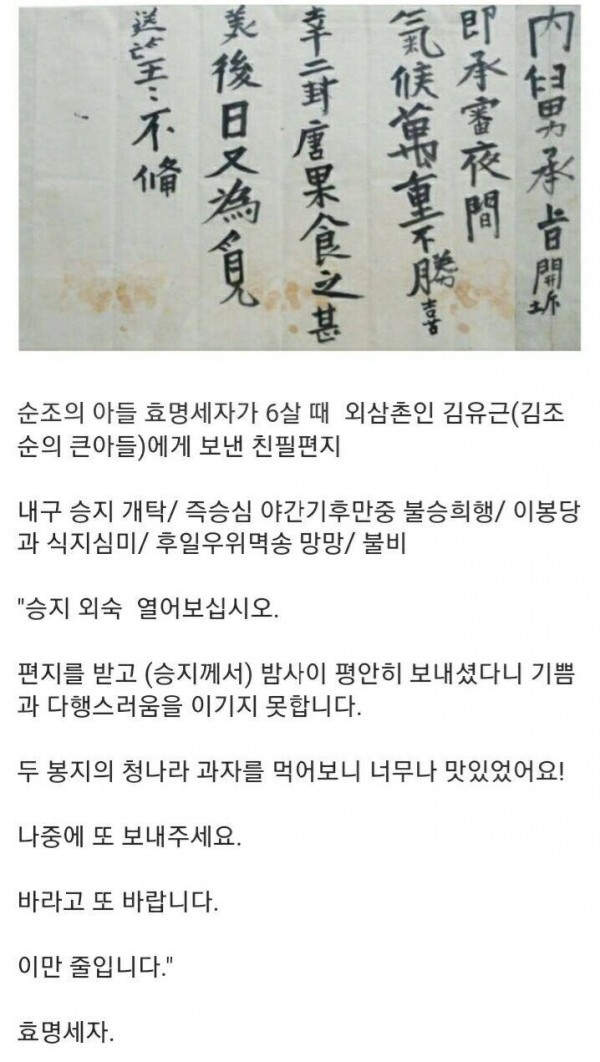 內舅承旨開坼
即承審夜間
氣候萬重不勝喜
幸二封唐果食之甚
美後日又為覓
送望〻不備
순조의 아들 효명세자가 6살 때 외삼촌인 김유근(김조
순의 큰아들)에게 보낸 친필편지
내구 승지 개탁/ 즉승심 야간기후만중 불승희행/ 이봉당
과 식지심미/ 후일우위멱송 망망/ 불비
"승지 외숙 열어보십시오.
편지를 받고 (승지께서) 밤사이 평안히 보내셨다니 기쁨
과 다행스러움을 이기지 못합니다.
두 봉지의 청나라 과자를 먹어보니 너무나 맛있었어요!
나중에 또 보내주세요.
바라고 또 바랍니다.
이만 줄입니다."
효명세자.